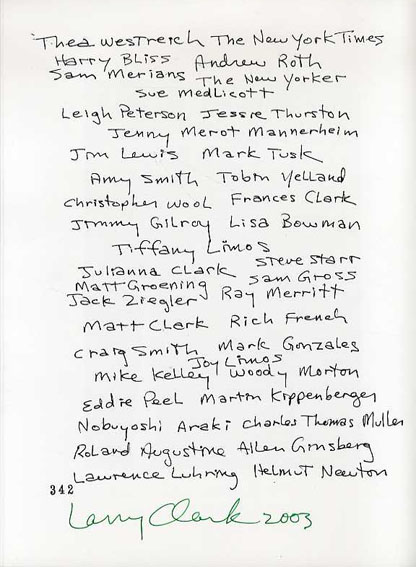 Thea Westreich The New York Times
Harry Bliss Andrew Roth
Sam Merians The New Yorker
Sue Medlicott
Leigh Peterson Jessie Thurston
Jenny Merot Mannerheim
Jim Lewis Mark Tusk
Amy Smith Tobin Yelland
Christopher Wool Frances Clark
Jimmy Gilroy Lisa Bowman
Tiffany Limos
Julianna Clark Steve Starr
Matt Groening Sam Gross
Jack Ziegler Ray Merritt
Matt Clark Rich French
Craig Smith Mark Gonzales
Joy Limos
Mike Kelley Woody Morton
Eddie Peel Martin Kippenberger
Nobuyoshi Araki Charles Thomas Muller
Roland Augustine Allen Ginsberg
Lawrence Luhring Helmut Newton
342
Larry Clark 2003